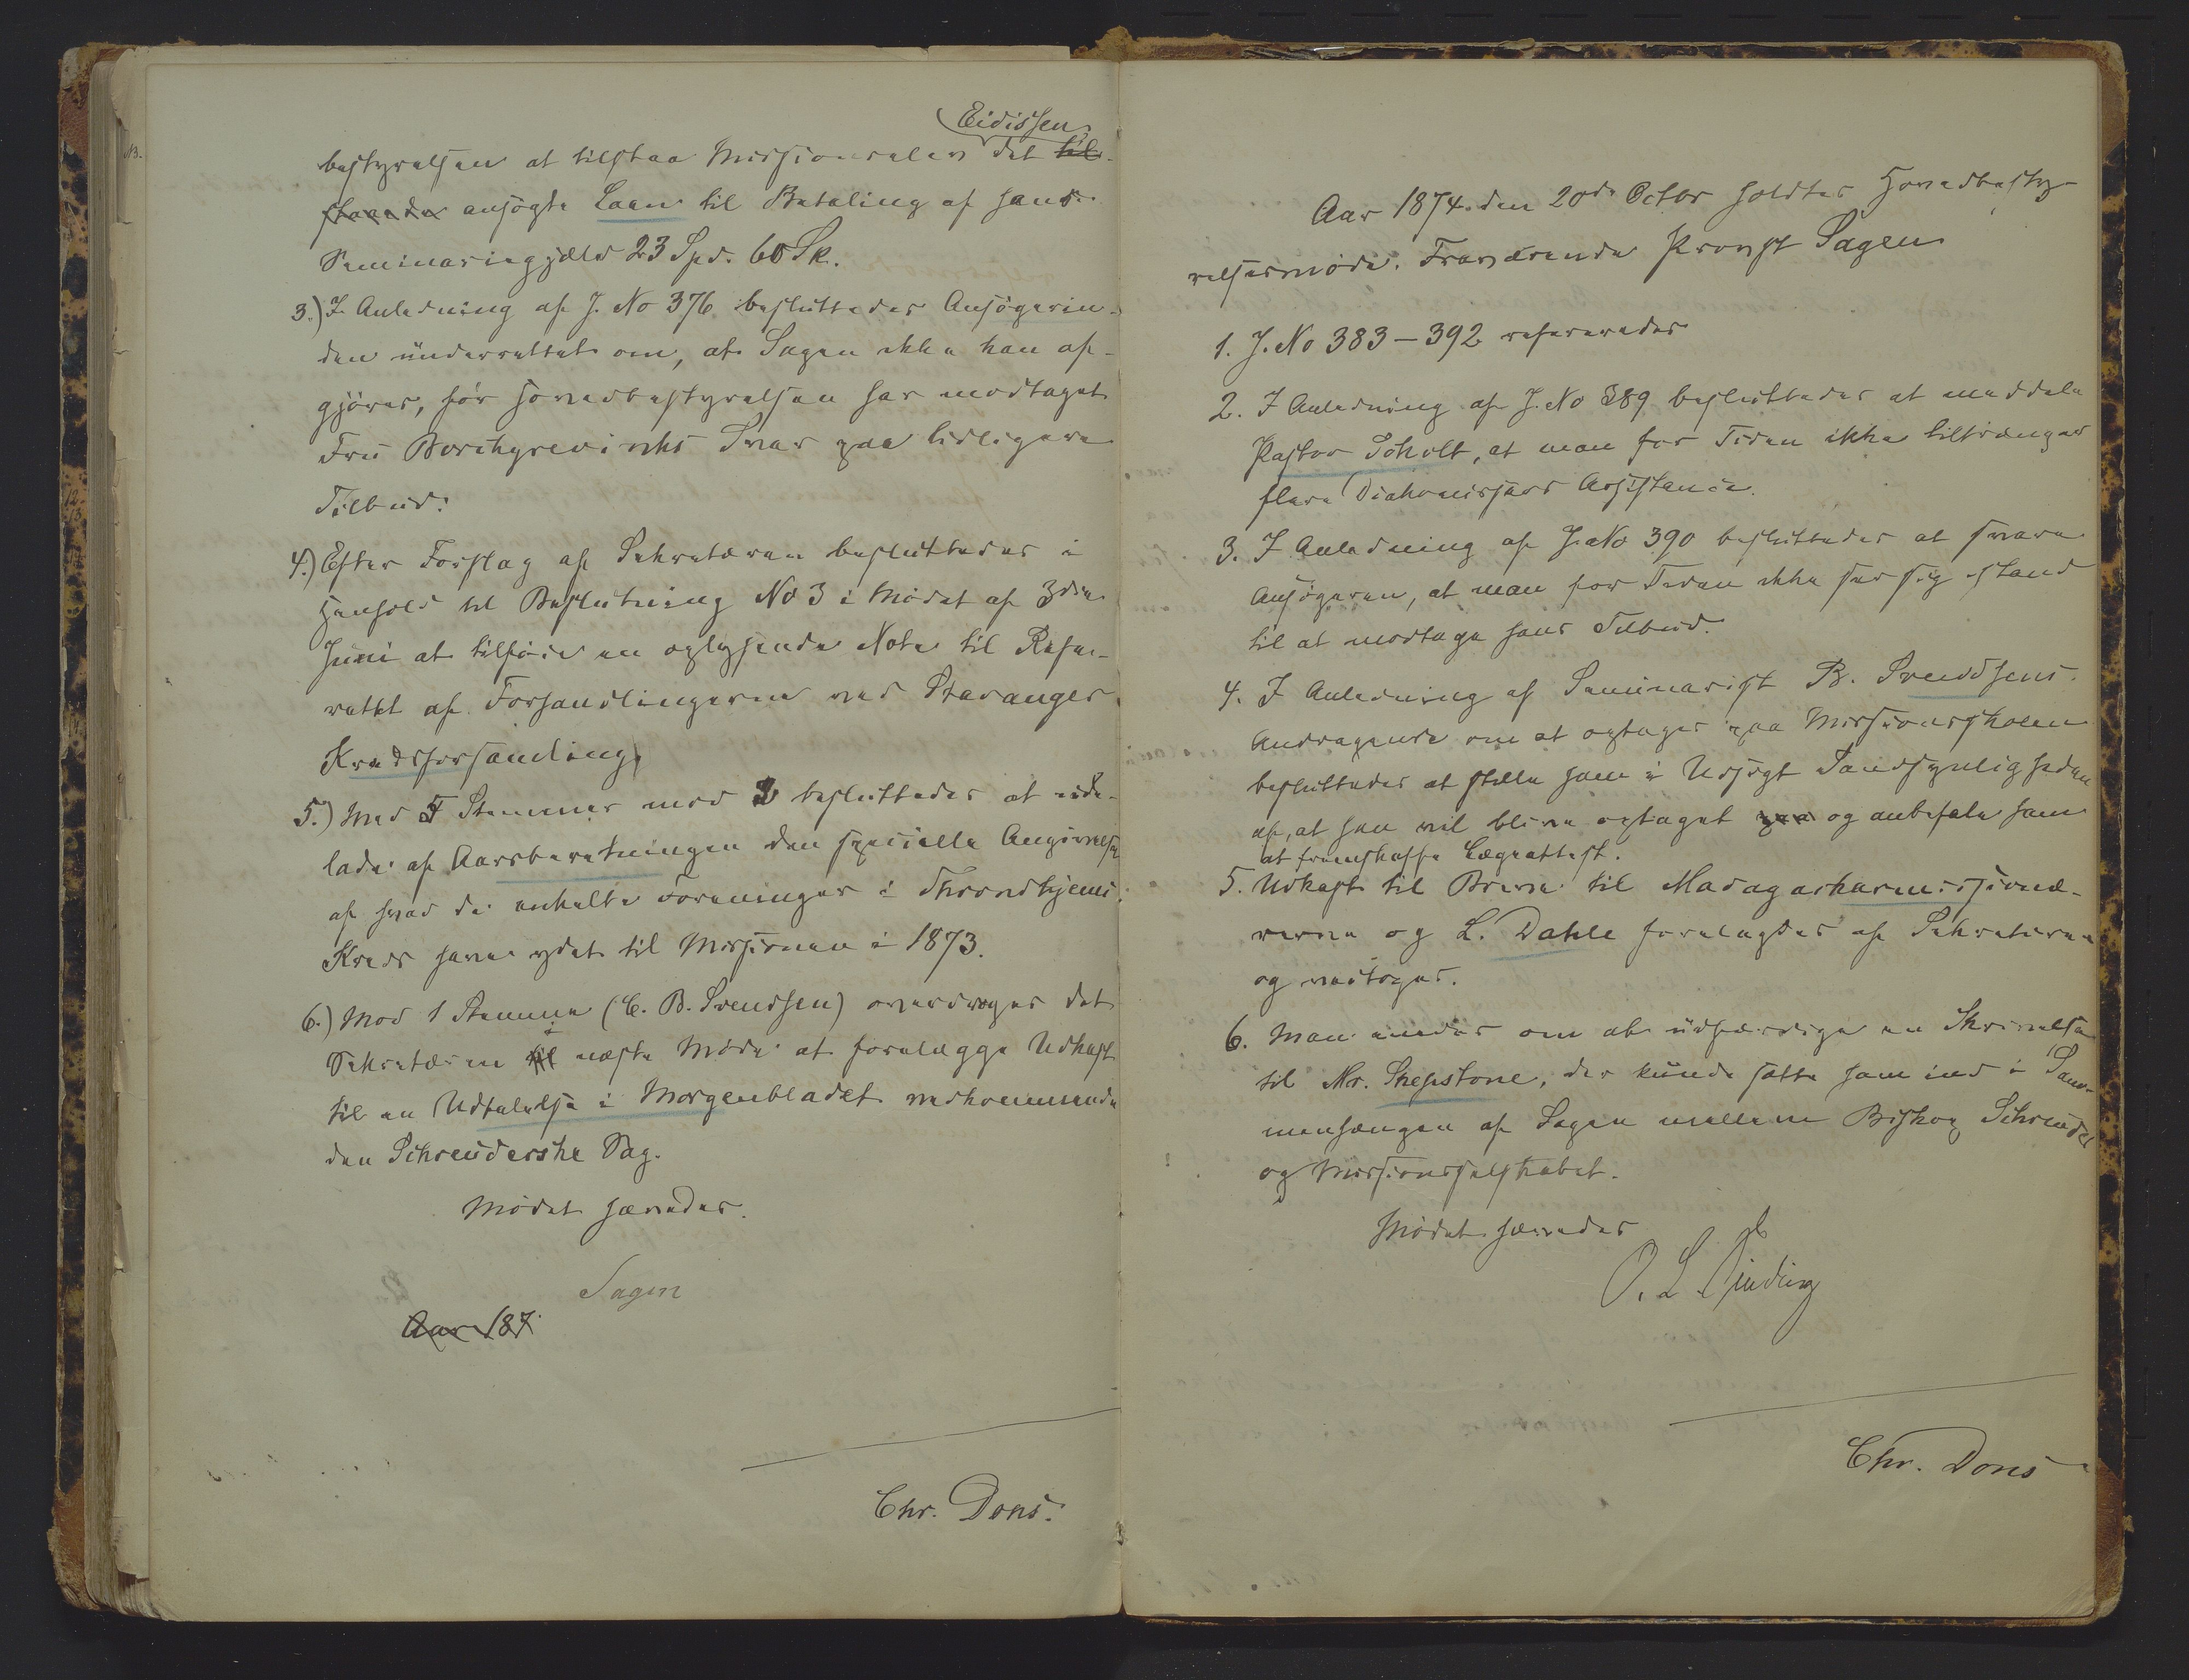 Eidissen
bestyrelsen at tilstaa Missionselev det til-
staaede ansøgte Laan til Betaling af hans
Seminariegjæld 23 Spd. 60 Sk.
3.) I Anledning af J. No 376 besluttedes Ansøgerin-
den underrettet om, at Sagen ikke kan af-
gjöres, för Hovedbestyrelsen har modtaget
Fru Borchgrevinks Svar paa tidligere
Tilbud.
4.) Efter Forslag af Sekretæren besluttedes i
Henhold til Beslutning No 3 i Mödet af 3die
Juni at tilföie en oplysende Note til Refe-
ratet af Forhandlingerne ved Stavanger
Kredsforsamling
5.) Med 5 Stemmer mod 2 besluttedes at ude-
lade af Aarsberetningen den specielle Angivelse
af hvad de enkelte Foreninger i Throndhjems
Kreds have ydet til Missionen i 1873.
6.) Mod 1 Stemme (C. B. Svendsen) overdroges det
Sekretæren til i næste Möde at forelægge Udkast
til en Udtalelse i Morgenbladet vedkommende
den Schreuderske Sag.
Mödet hævedes.
Sagen
Aar 187
Chr. Dons.
Aar 1874 den 20de Octbr holdtes Hovedbesty-
relsesmöde. Fraværende Provst Sagen
1. J. No 383-392 refereredes
2. I Anledning af J. No 389 besluttedes at meddele
Pastor Soholt, at man for Tiden ikke tiltrænger
flere Diakonissers Assistance.
3. I Anledning af J. No 390 besluttedes at svare
Ansögeren, at man for Tiden ikke ser sig istand
til at modtage hans Tilbud.
4. I Anledning af Seminarist B. Svendsens
Andragende om at optages paa Missionsskolen
besluttedes at stille ham i Udsigt Sandsynligheden
af, at han vil blive optaget paa og anbefale ham
at fremskaffe Lægeattest.
5. Udkast til Breve til Madagaskarmissionæ-
rerne og L. Dahle forelagdes af Sekretæren
og vedtoges.
6. Man enedes om at udfærdige en Skrivelse
til Mr. Shepstone, der kunde sætte ham ind i Sam-
menhængen af Sagen mellem Biskop Schreuder
og Missionsselskabet.
Mödet hævedes
O. L. Sinding
Chr. Dons